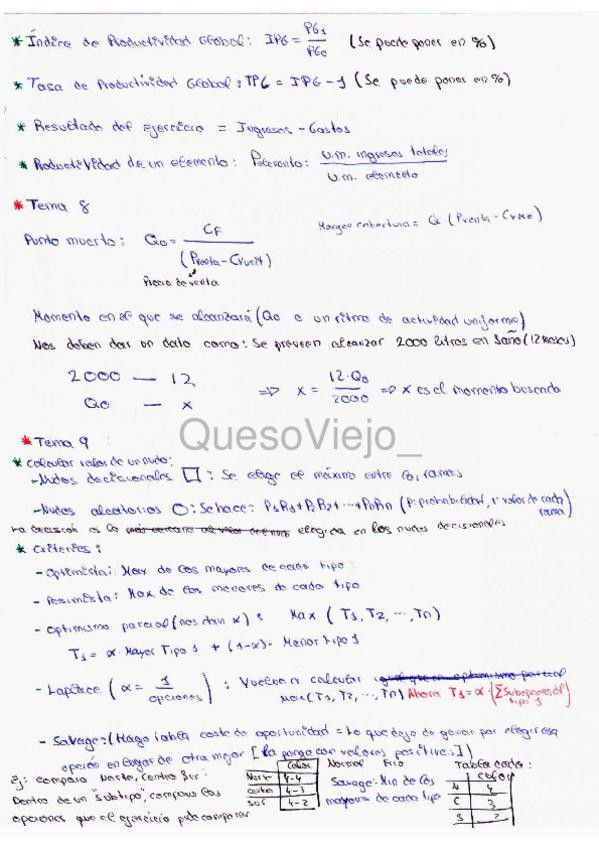 * Índice de Productividad Global: IPG = PG1 / PG0 (Se puede poner en %)
* Tasa de Productividad Global: TPG = IPG - 1 (Se puede poner en %)
* Resultado del ejercicio = Ingresos - Gastos
* Productividad de un elemento: Pelemento: u.m. ingresos totales / u.m. elemento
* Tema 8
Margen cobertura = Q (Pventa - Cvme)
Punto muerto: Q0 = CF / (Pventa - Cvunit)
Precio de venta
Momento en el que se alcanzará (Q0 a un ritmo de actividad uniforme)
Nos deben dar un dato como: Se preveen alcanzar 2000 litros en 1 año (12 meses)
2000 — 12
Q0 — x
=> x = 12·Q0 / 2000 => x es el momento buscado
QuesoViejo_
* Tema 9
* Calcular valor de un nudo:
- Nudos decisionales □: Se elige el máximo entre las ramas
- Nudos aleatorios O: Se hace: P1R1+P2R2+...+PnRn (P: probabilidad, r: valor de cada rama)
la decisión es la elegida en los nudos decisionales
* Criterios:
- Optimista: Max de los mayores de cada tipo
- Pesimista: Max de los menores de cada tipo
- Optimismo parcial (nos dan α): Max (T1, T2, ..., Tn)
T1 = α·Mayor Tipo 1 + (1-α)·Menor Tipo 1
- Laplace (α = 1 / opciones): Vuelve a calcular
max (T1, T2, ..., Tn) Ahora T1 = α·(∑ Subopciones del tipo 1)
- Savage: (Hago tabla coste de oportunidad = lo que dejo de ganar por elegir esa
opción en lugar de otra mejor [la pongo con valores positivos])
Ej: comparo Norte, Centro, Sur:
Dentro de un "subtipo", comparo las
opciones que el ejercicio pide comparar
Calor Normal Frío
Norte 4-4
Centro 4-3
Sur 4-2
Savage: Min de los
mayores de cada tipo
Tabla cada:
calor
N 4
C 3
S 2